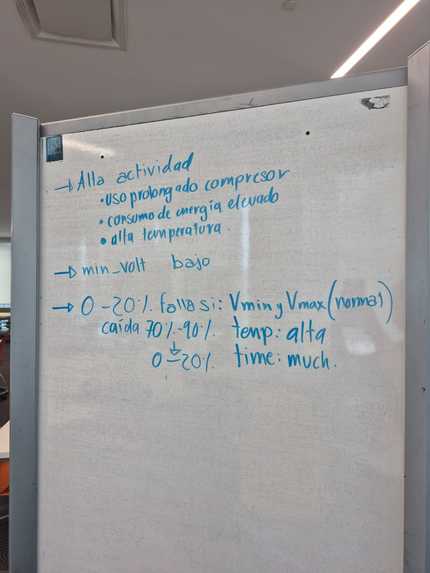 → Alta actividad
• Uso prolongado compresor
• consumo de energía elevado
• alta temperatura.
→ min_volt bajo
→ 0-20%. falla si: Vmin y Vmax (normal)
caída 70%-90% temp: alta
↓
0-20% time: much.